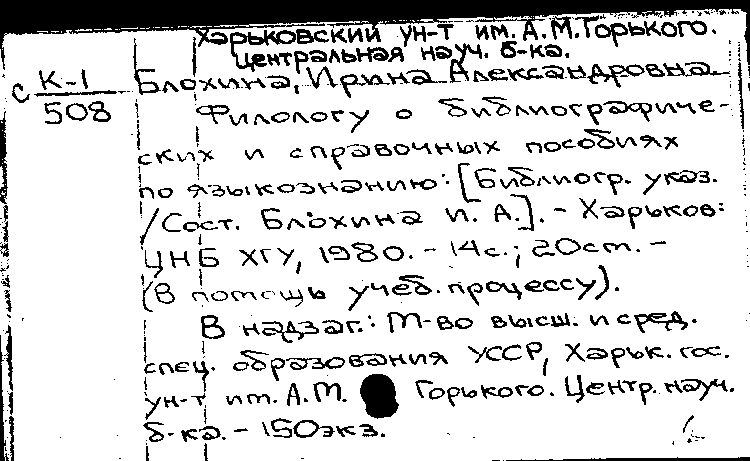 Харьковский ун-т им. А.М.Горького.
Центральная науч. б-ка.
с К-1
508
Блохина, Ирина Александровна
Филологу о библиографиче-
ских и справочных пособиях
по языкознанию: [Библиогр. указ.
/Сост. Блохина И. А.]. - Харьков:
ЦНБ ХГУ, 1980. - 14с.; 20см. -
(В помощь учеб. процессу).
В надзаг.: М-во высш. и сред.
спец. образования УССР, Харьк. гос.
ун-т им. А.М. Горького. Центр. науч.
б-ка. - 150экз.